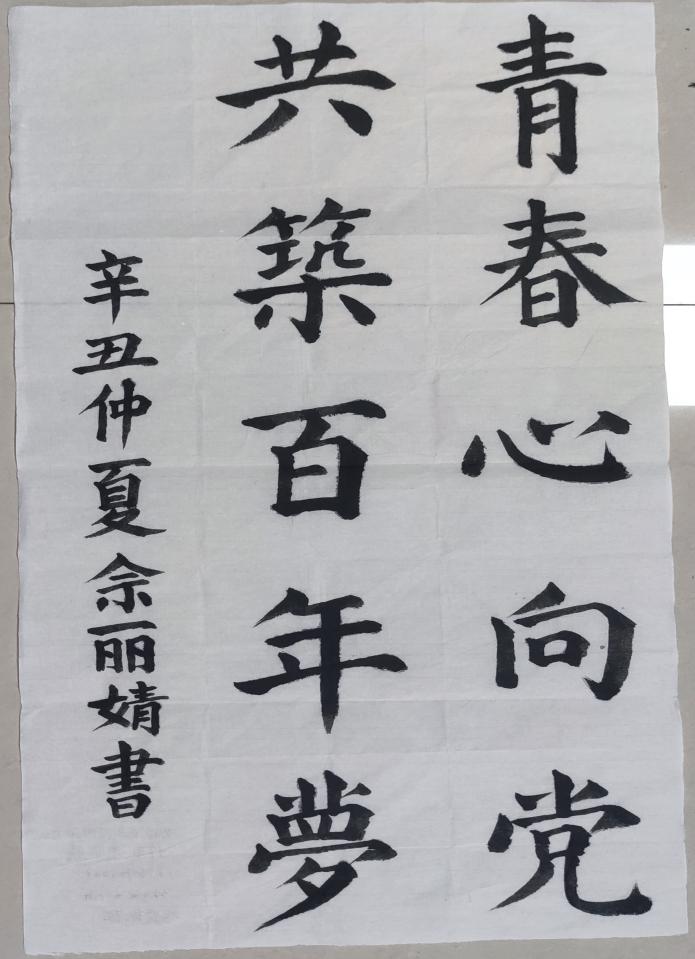 青春心向党
共築百年夢
辛丑仲夏佘丽婧書